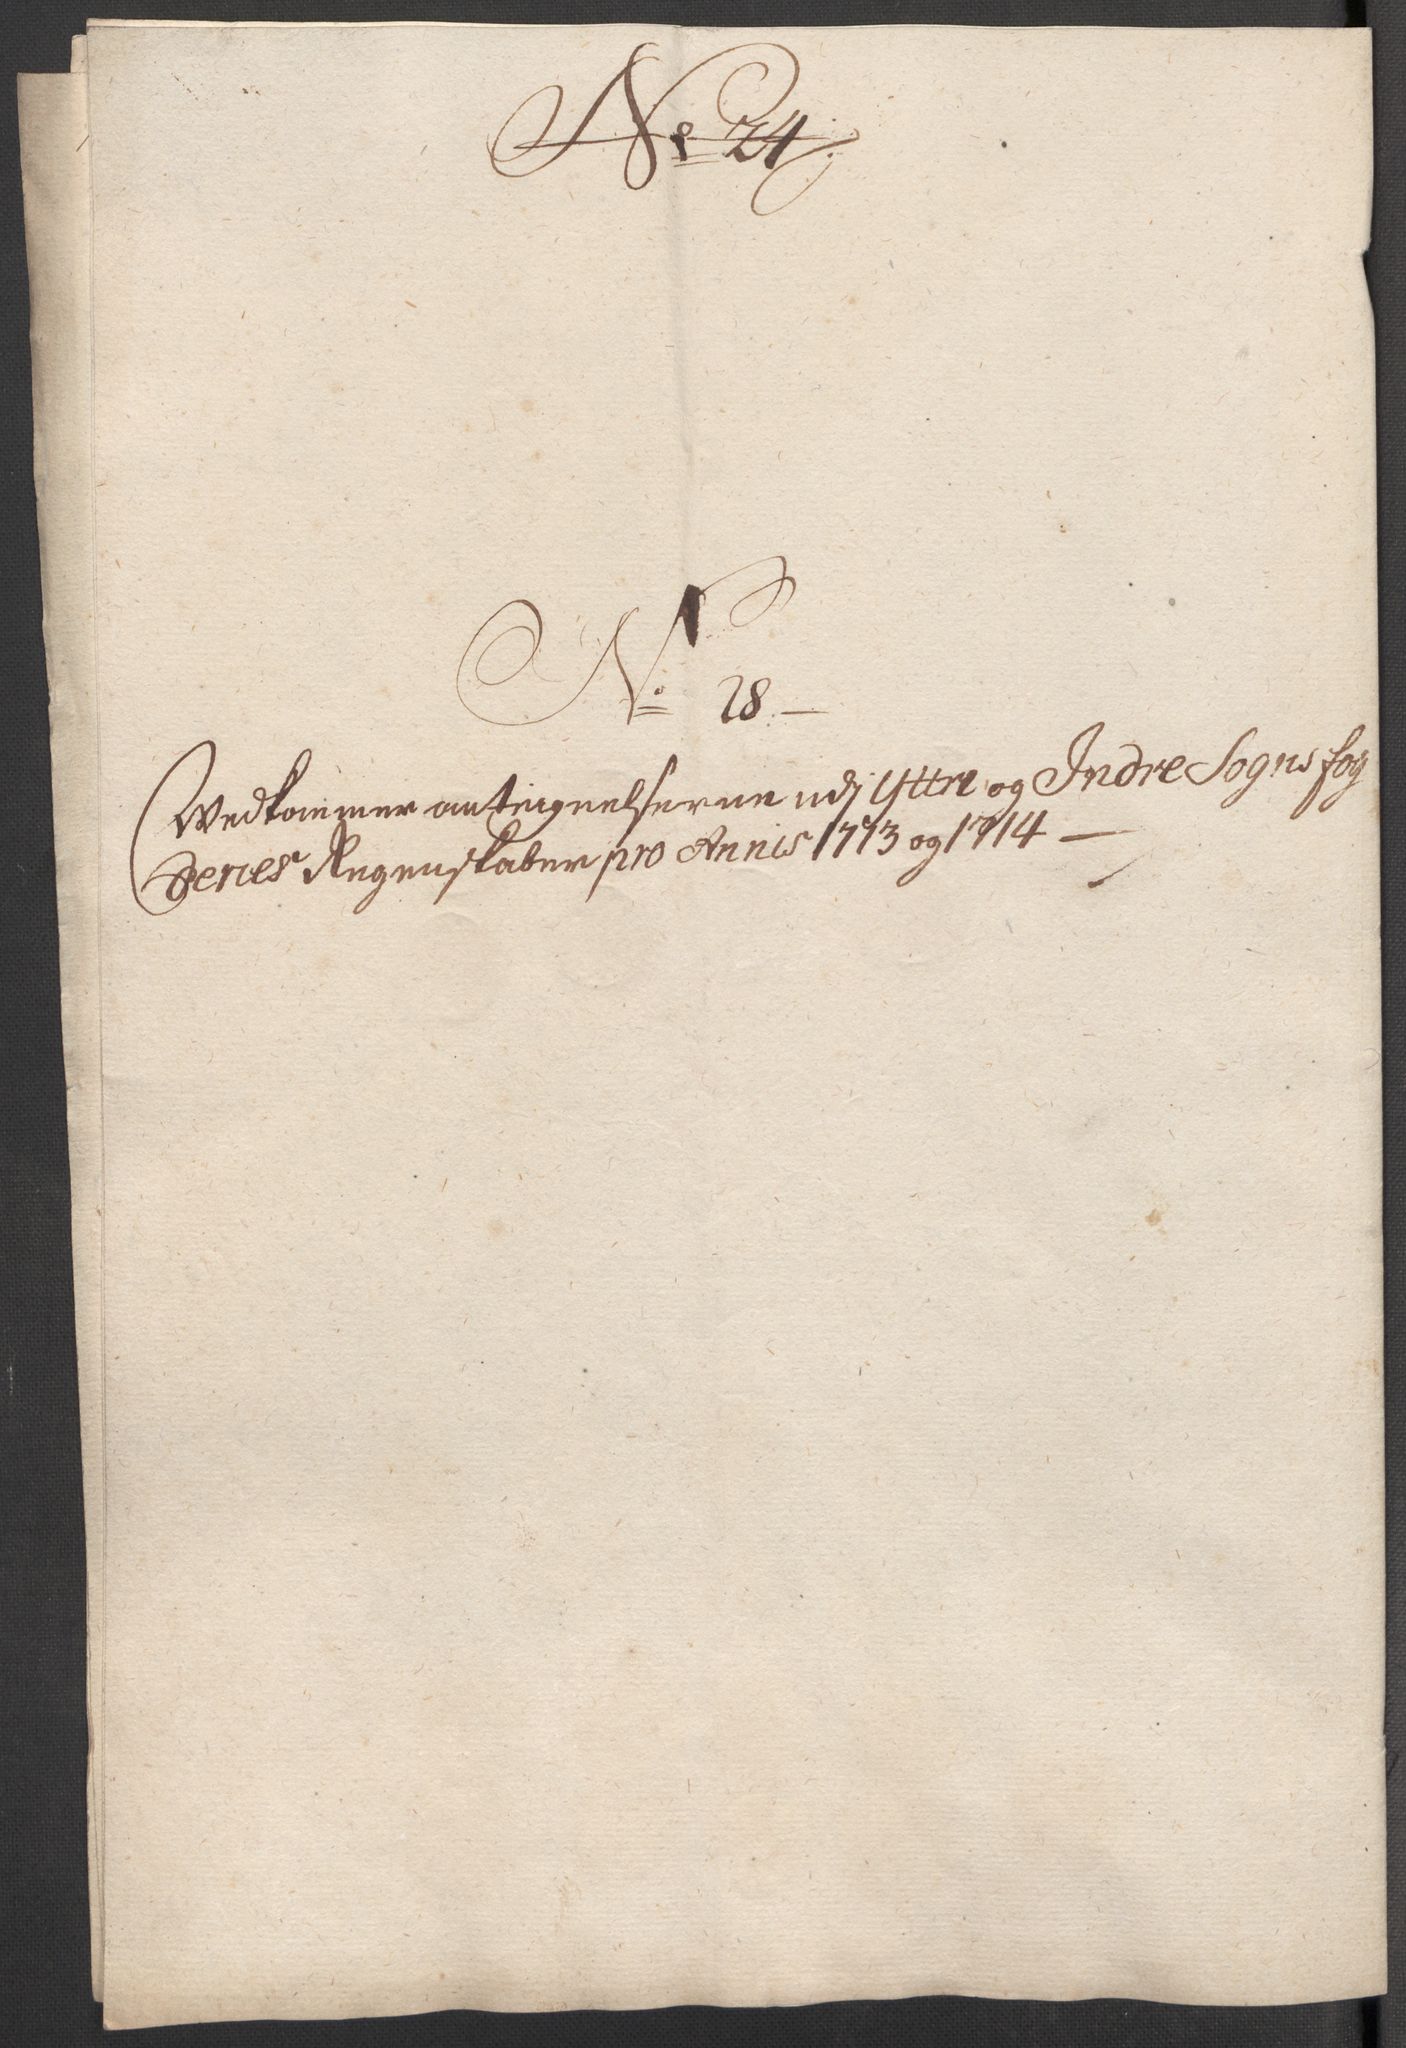 No 24
No 28
Wedkommer anteigneelserne udj Yttre og Indre Sogns fog
deries Regenskaber pro Annis 1713 og 1714